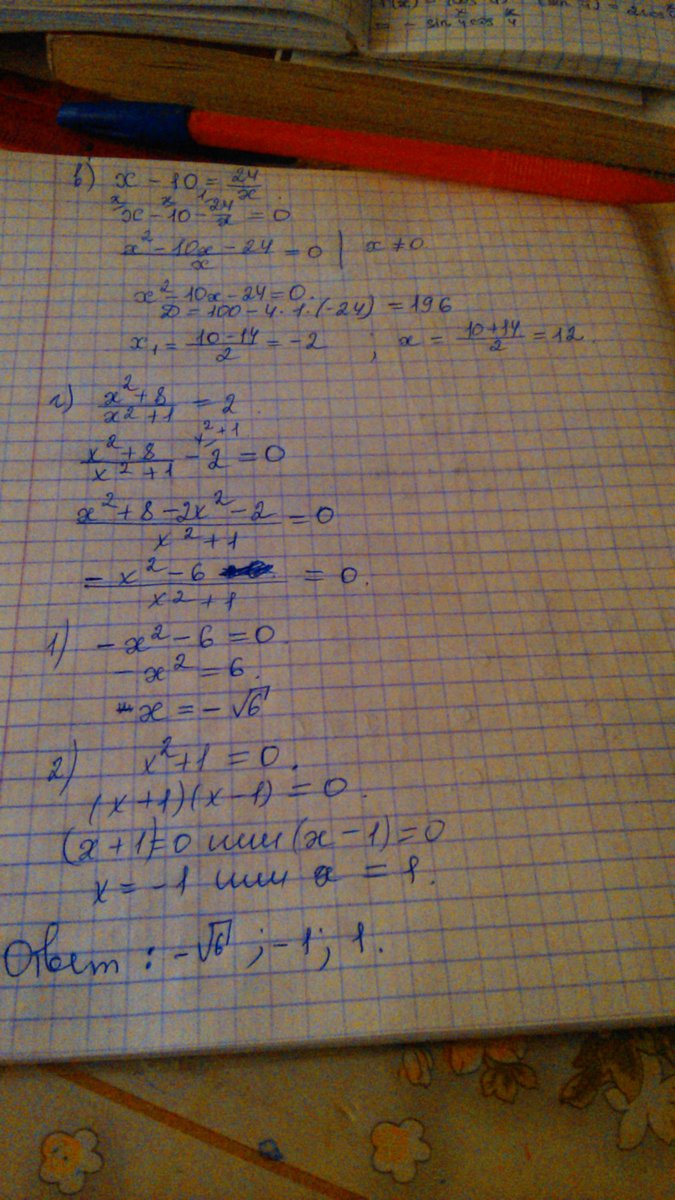 = - sin x/4 cos x/4
в) x - 10 = 24/x
x - 10 - 24/x = 0
(x² - 10x - 24)/x = 0 | x ≠ 0
x² - 10x - 24 = 0.
D = 100 - 4 · 1 · (-24) = 196
x₁ = (10 - 14)/2 = -2 ; x = (10 + 14)/2 = 12.
г) (x² + 8)/(x² + 1) = 2
(x² + 8)/(x² + 1) - 2 = 0
(x² + 8 - 2x² - 2)/(x² + 1) = 0
(- x² - 6)/(x² + 1) = 0.
1) - x² - 6 = 0.
- x² = 6.
- x = - √6
2) x² + 1 = 0.
(x + 1)(x - 1) = 0.
(x + 1) = 0 или (x - 1) = 0
x = - 1 или x = 1.
Ответ : - √6 ; - 1 ; 1.